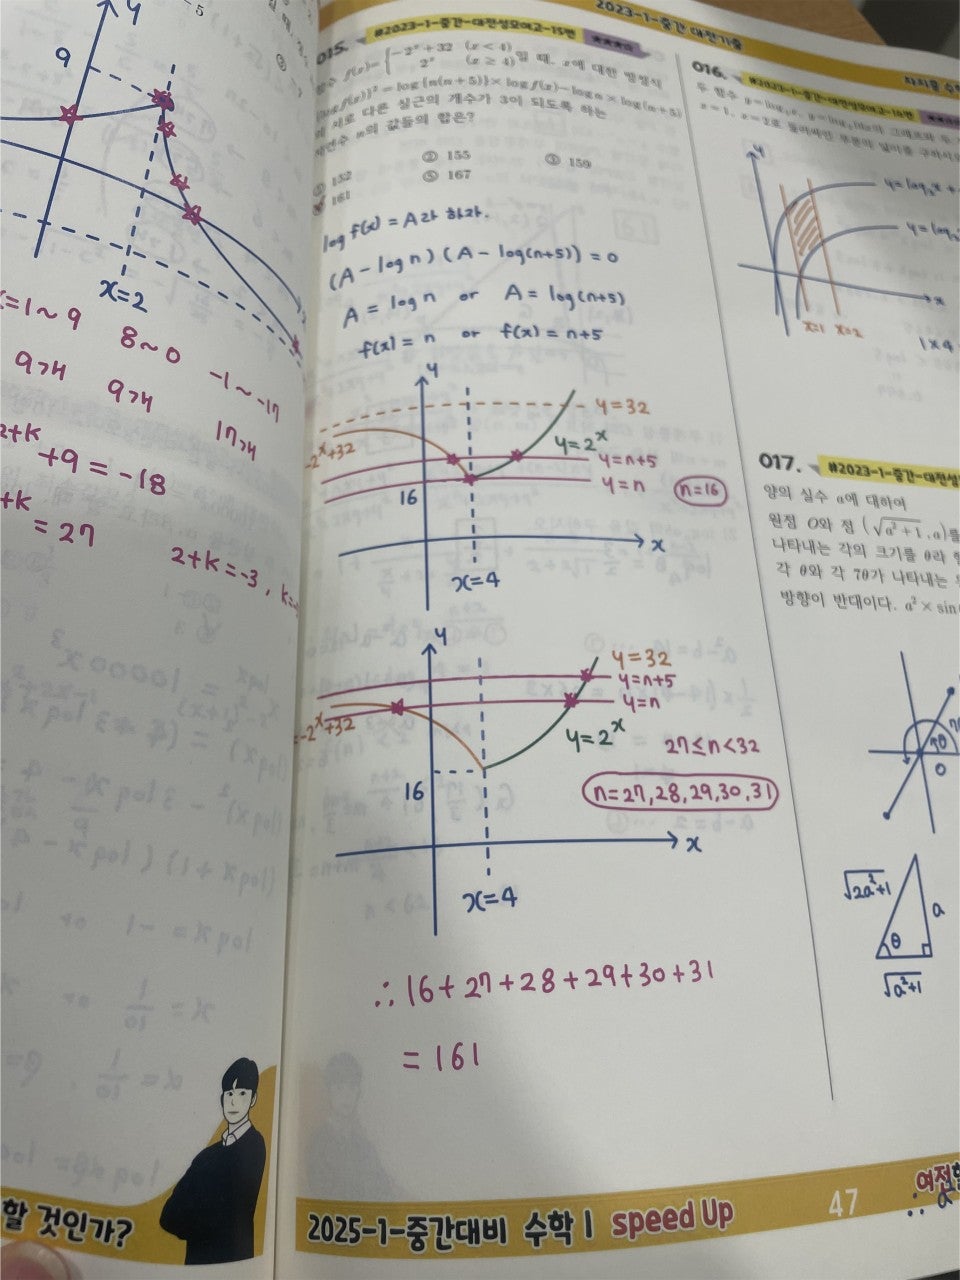 9
x=2
x=1~9
8~0
-1~-17
9개
9개
17개
2+k
+9=-18
+k
=27
2+k=-3, k=-5
할 것인가?
2023-1-중간 대전기출
015.
#2023-1-중간-대전성모여고-15번
함수 f(x)={ -2ˣ+32 (x<4)
2ˣ (x≥4) 일 때, x에 대한 방정식
{log f(x)}² - log{n(n+5)}×log f(x) - log n × log(n+5)
의 서로 다른 실근의 개수가 3이 되도록 하는
자연수 n의 값들의 합은?
① 152
② 155
③ 159
161
⑤ 167
log f(x) = A라 하자.
(A - log n)(A - log(n+5)) = 0
A = log n or A = log(n+5)
f(x) = n or f(x) = n+5
y
y=32
-2ˣ+32
y=2ˣ
y=n+5
y=n
n=16
16
x
x=4
y
y=32
y=n+5
y=n
=-2ˣ+32
y=2ˣ
27≤n<32
n=27,28,29,30,31
16
x
x=4
∴ 16+27+28+29+30+31
=161
2025-1-중간대비 수학Ⅰ speed Up
47
016.
y
x
x=1
x=2
1×4
017.
#2023-1-중간-대전성
양의 실수 a에 대하여
원점 O와 점 (√a²+1, a)를
나타내는 각의 크기를 θ라 할
각 θ와 각 7θ가 나타내는
방향이 반대이다. a²×sin
7θ
O
√2a²+1
a
θ
√a²+1
여전
∴ a